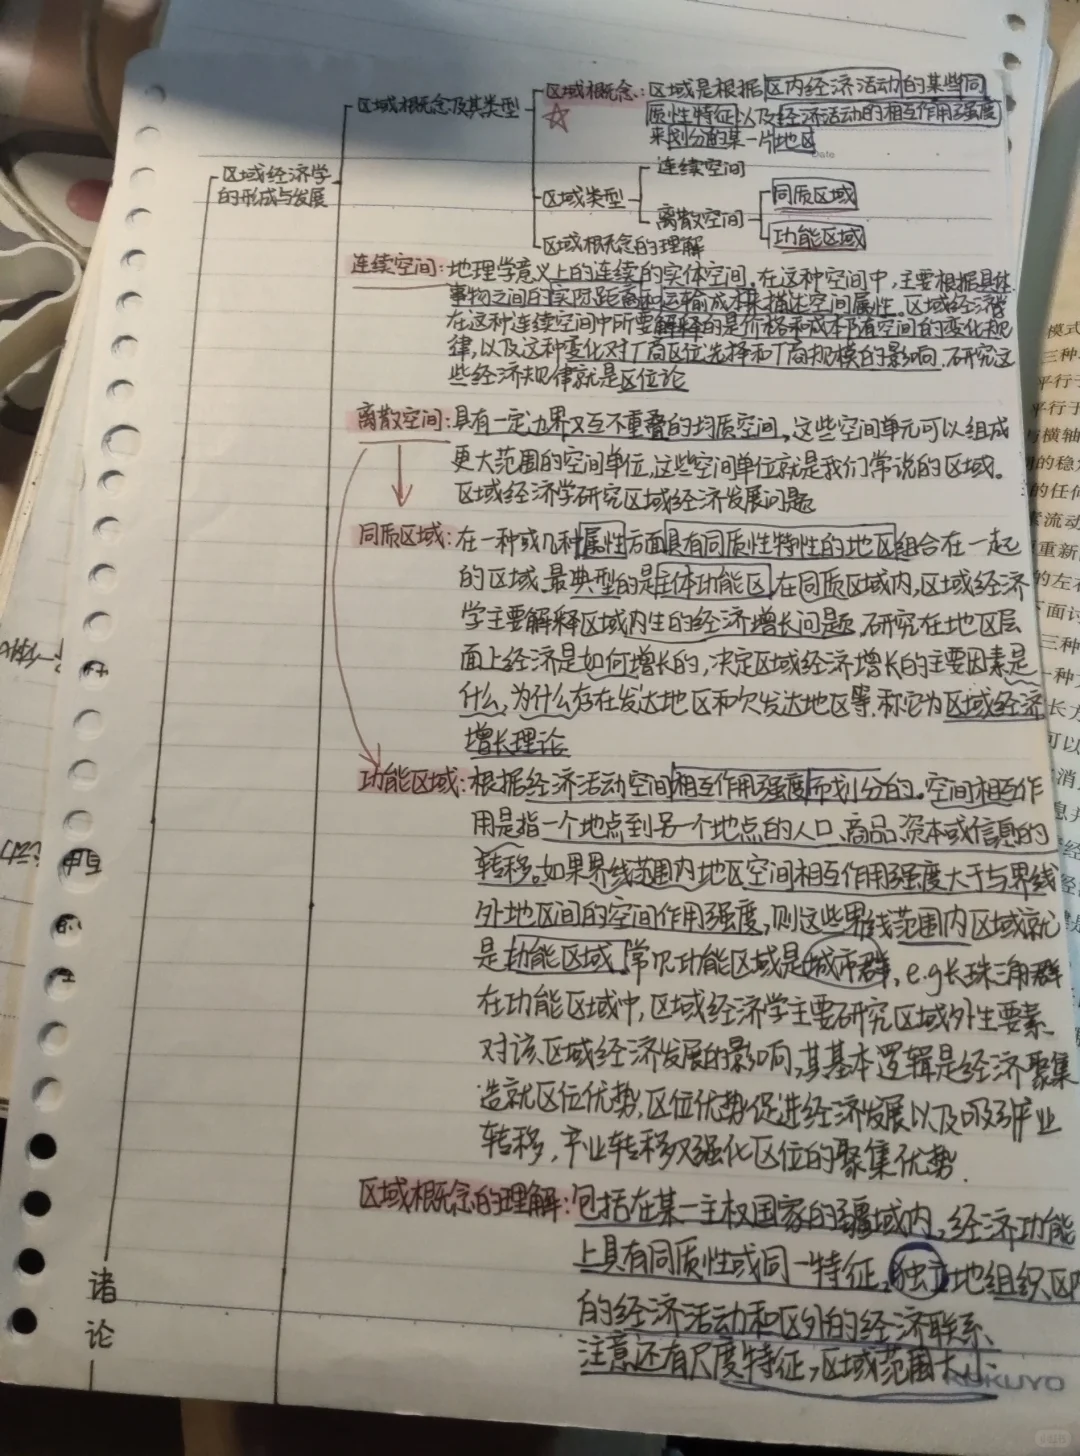 区域概念及其类型
区域概念：区域是根据区内经济活动的某些同
质性特征以及经济活动的相互作用强度
来划分的某一片地区
Date
区域经济学
的形成与发展
连续空间
区域类型
离散空间
同质区域
功能区域
区域概念的理解
连续空间：地理学意义上的连续的实体空间，在这种空间中，主要根据具体
事物之间的实际距离和运输成本来描述空间属性。区域经济学
在这种连续空间中所要解释的是价格和成本随空间的变化规
律，以及这种变化对厂商区位选择和厂商规模的影响，研究这
些经济规律就是区位论
离散空间：具有一定边界又互不重叠的均质空间，这些空间单元可以组成
更大范围的空间单位，这些空间单位就是我们常说的区域。
区域经济学研究区域经济发展问题
同质区域：在一种或几种属性方面具有同质性特性的地区组合在一起
的区域，最典型的是主体功能区，在同质区域内，区域经济
学主要解释区域内生的经济增长问题，研究在地区层
面上经济是如何增长的，决定区域经济增长的主要因素是
什么，为什么存在发达地区和欠发达地区等，称它为区域经济
增长理论
功能区域：根据经济活动空间相互作用强度而划分的。空间相互作
用是指一个地点到另一个地点的人口、商品、资本或信息的
转移。如果界线范围内地区空间相互作用强度大于与界线
外地区间的空间作用强度，则这些界线范围内区域就
是功能区域，常见功能区域是城市群，e.g长珠三角群
在功能区域中，区域经济学主要研究区域外生要素
对该区域经济发展的影响，其基本逻辑是经济聚集
造就区位优势，区位优势促进经济发展以及吸引产业
转移，产业转移又强化区位的聚集优势.
区域概念的理解：包括在某一主权国家的疆域内，经济功能
上具有同质性或同一特征，独立地组织区内
的经济活动和区外的经济联系、
注意还有尺度特征，区域范围大小
KOKUYO
诸
论
模式
三种
平行于
平行于
横轴
的稳
的任何
流动
重新
的左
面讨
三种
一种
长方
可以
消
息